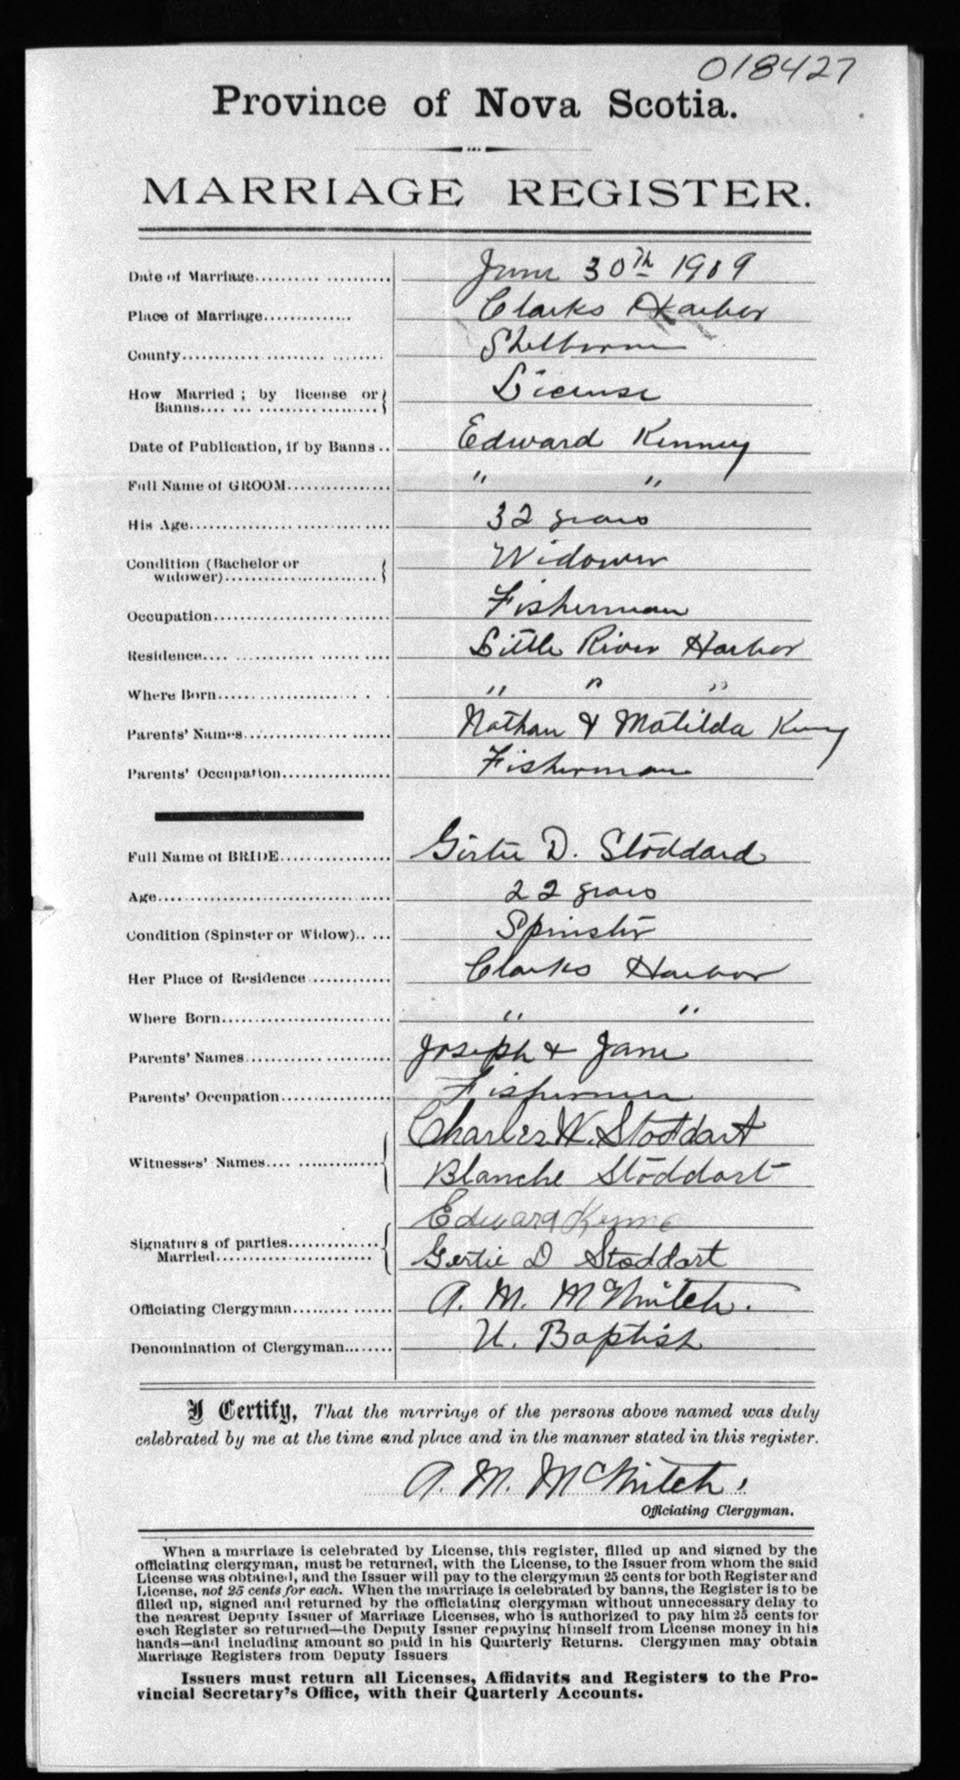 018427
Province of Nova Scotia.
MARRIAGE REGISTER.
Date of Marriage June 30th 1909
Place of Marriage Clarks Harbor
County Shelburne
How Married; by license or Banns License
Date of Publication, if by Banns Edward Kinney
Full Name of GROOM " "
His Age 32 years
Condition (Bachelor or widower) Widower
Occupation Fisherman
Residence Little River Harbor
Where Born " " "
Parents' Names Nathan & Matilda Kinney
Parents' Occupation Fisherman
Full Name of BRIDE Girtie D. Stoddard
Age 22 years
Condition (Spinster or Widow) Spinster
Her Place of Residence Clarks Harbor
Where Born " "
Parents' Names Joseph & Jane
Parents' Occupation Fisherman
Witnesses' Names Charles W. Stoddart
Blanche Stoddart
Signatures of parties Married Edward
Gertie D Stoddart
Officiating Clergyman A. M. McNintch.
Denomination of Clergyman U. Baptist
I Certify, That the marriage of the persons above named was duly
celebrated by me at the time and place and in the manner stated in this register.
A. M. McNintch.
Officiating Clergyman.
When a marriage is celebrated by License, this register, filled up and signed by the
officiating clergyman, must be returned, with the License, to the Issuer from whom the said
License was obtained, and the Issuer will pay to the clergyman 25 cents for both Register and
License, not 25 cents for each. When the marriage is celebrated by banns, the Register is to be
filled up, signed and returned by the officiating clergyman without unnecessary delay to
the nearest Deputy Issuer of Marriage Licenses, who is authorized to pay him 25 cents for
each Register so returned—the Deputy Issuer repaying himself from License money in his
hands—and including amount so paid in his Quarterly Returns. Clergymen may obtain
Marriage Registers from Deputy Issuers
Issuers must return all Licenses, Affidavits and Registers to the Pro-
vincial Secretary's Office, with their Quarterly Accounts.